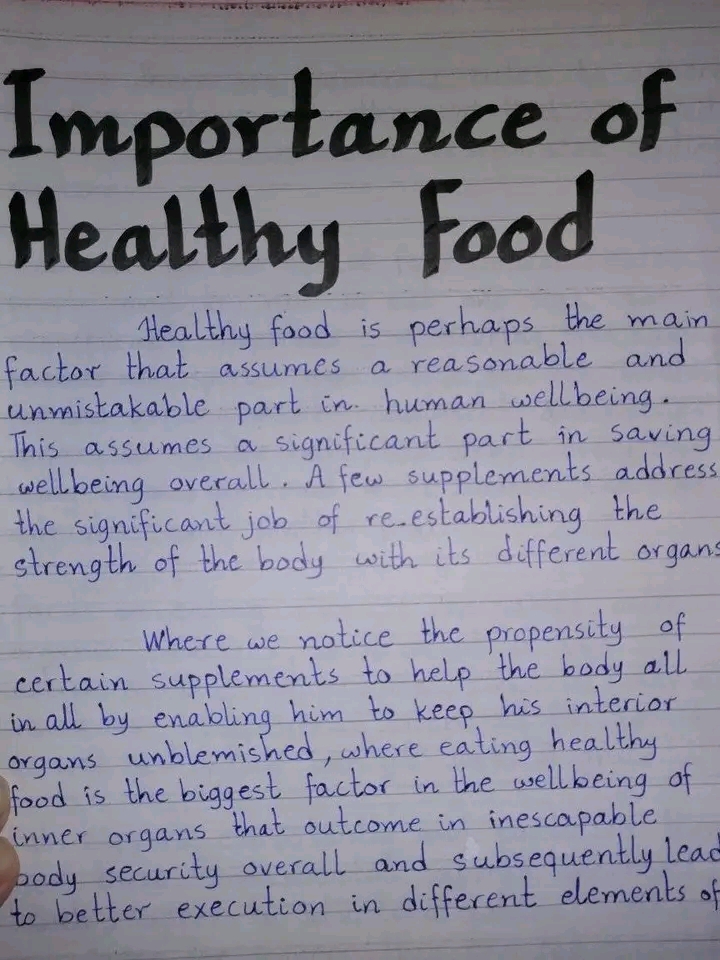 Importance of
Healthy Food
Healthy food is perhaps the main
factor that assumes a reasonable and
unmistakable part in human wellbeing.
This assumes a significant part in saving
wellbeing overall. A few supplements address
the significant job of re-establishing the
strength of the body with its different organs
Where we notice the propensity of
certain supplements to help the body all
in all by enabling him to keep his interior
organs unblemished, where eating healthy
food is the biggest factor in the wellbeing of
inner organs that outcome in inescapable
body security overall and subsequently lead
to better execution in different elements of